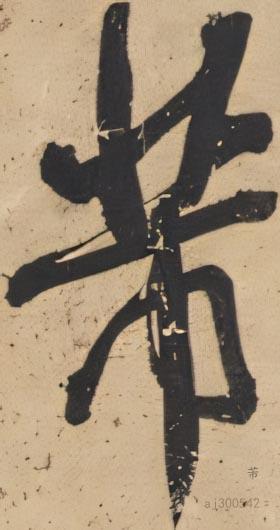 芾
芾
aj300542